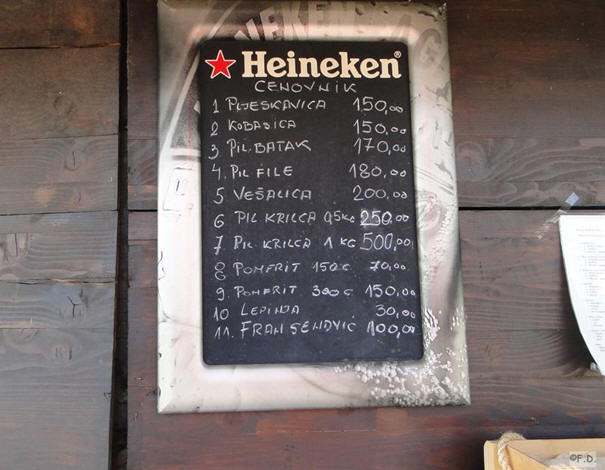 HEINEKEN BAG
Heineken®
CENOVNIK
1 PLJESKAVICA 150,00
2 KOBASICA 150,00
3 PIL.BATAK 170,00
4. PIL FILE 180,00
5 VEŠALICA 200,00
6 PIL KRILCA 0,5KG 250,00
7 PIL KRILCA 1 KG 500,00
8 POMFRIT 150G 70,00
9. POMFRIT 300G 150,00
10 LEPINJA 30,00
11. FRAN SENDVIČ 100,00
©F.D.